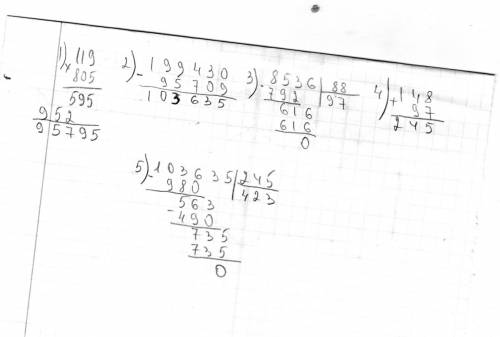 1) 119
× 805
595
952
95795
2) - 199430
95709
103635
3) - 8536 | 88
792 | 97
616
616
0
4) + 148
97
245
5) - 103635 | 245
980 | 423
563
- 490
735
735
0